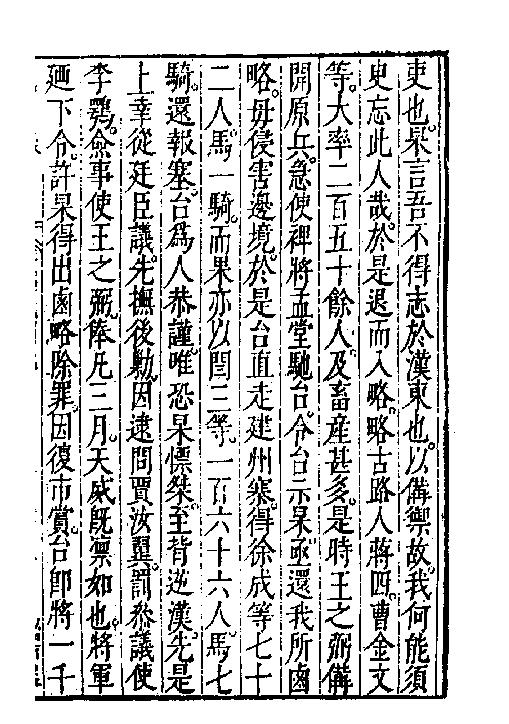 吏也杲言吾不得志於漢東也以備禦故我何能須
臾忘此人哉於是退而入略略古路人蔣四曹金文
等大率二百五十餘人及畜産甚多是時王之弼備
開原兵急使裨將孟堂馳台令台示杲亟還我所鹵
略毋侵害邊境於是台直走建州寨得徐成等七十
二人馬一騎而果亦以閏三等一百六十六人馬七
騎還報塞台為人恭謹唯恐杲慓桀至背逆漢先是
上幸從廷臣議先撫後勦因逮問賈汝翼罰叅議使
李鶚僉事使王之弼俸凡三月天威旣凛如也將軍
廼下令許杲得出鹵略除罪因復市賞台卽將一千